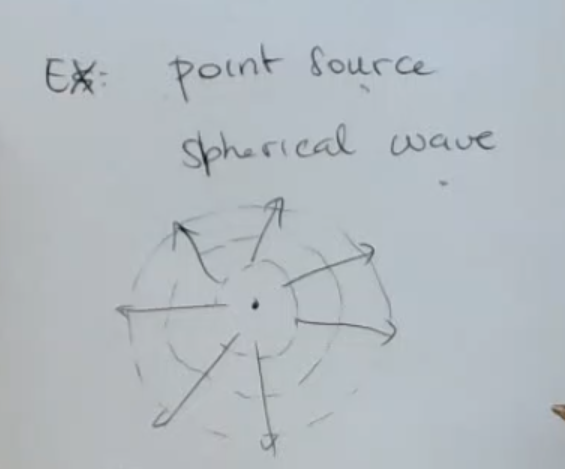 Ex: point source
spherical wave